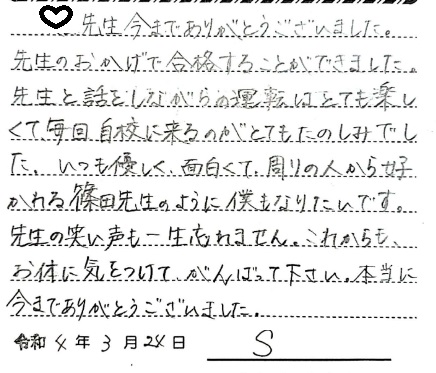 先生今までありがとうございました。
先生のおかげで合格することができました。
先生と話をしながらの運転はとても楽し
くて毎回自校に来るのがとてもたのしみでし
た。いつも優しく、面白くて、周りの人から好
かれる篠田先生のように僕もなりたいです。
先生の笑い声も一生忘れません。これからも、
お体に気をつけて、がんばって下さい。本当に
今までありがとうございました。
令和4年3月24日 S